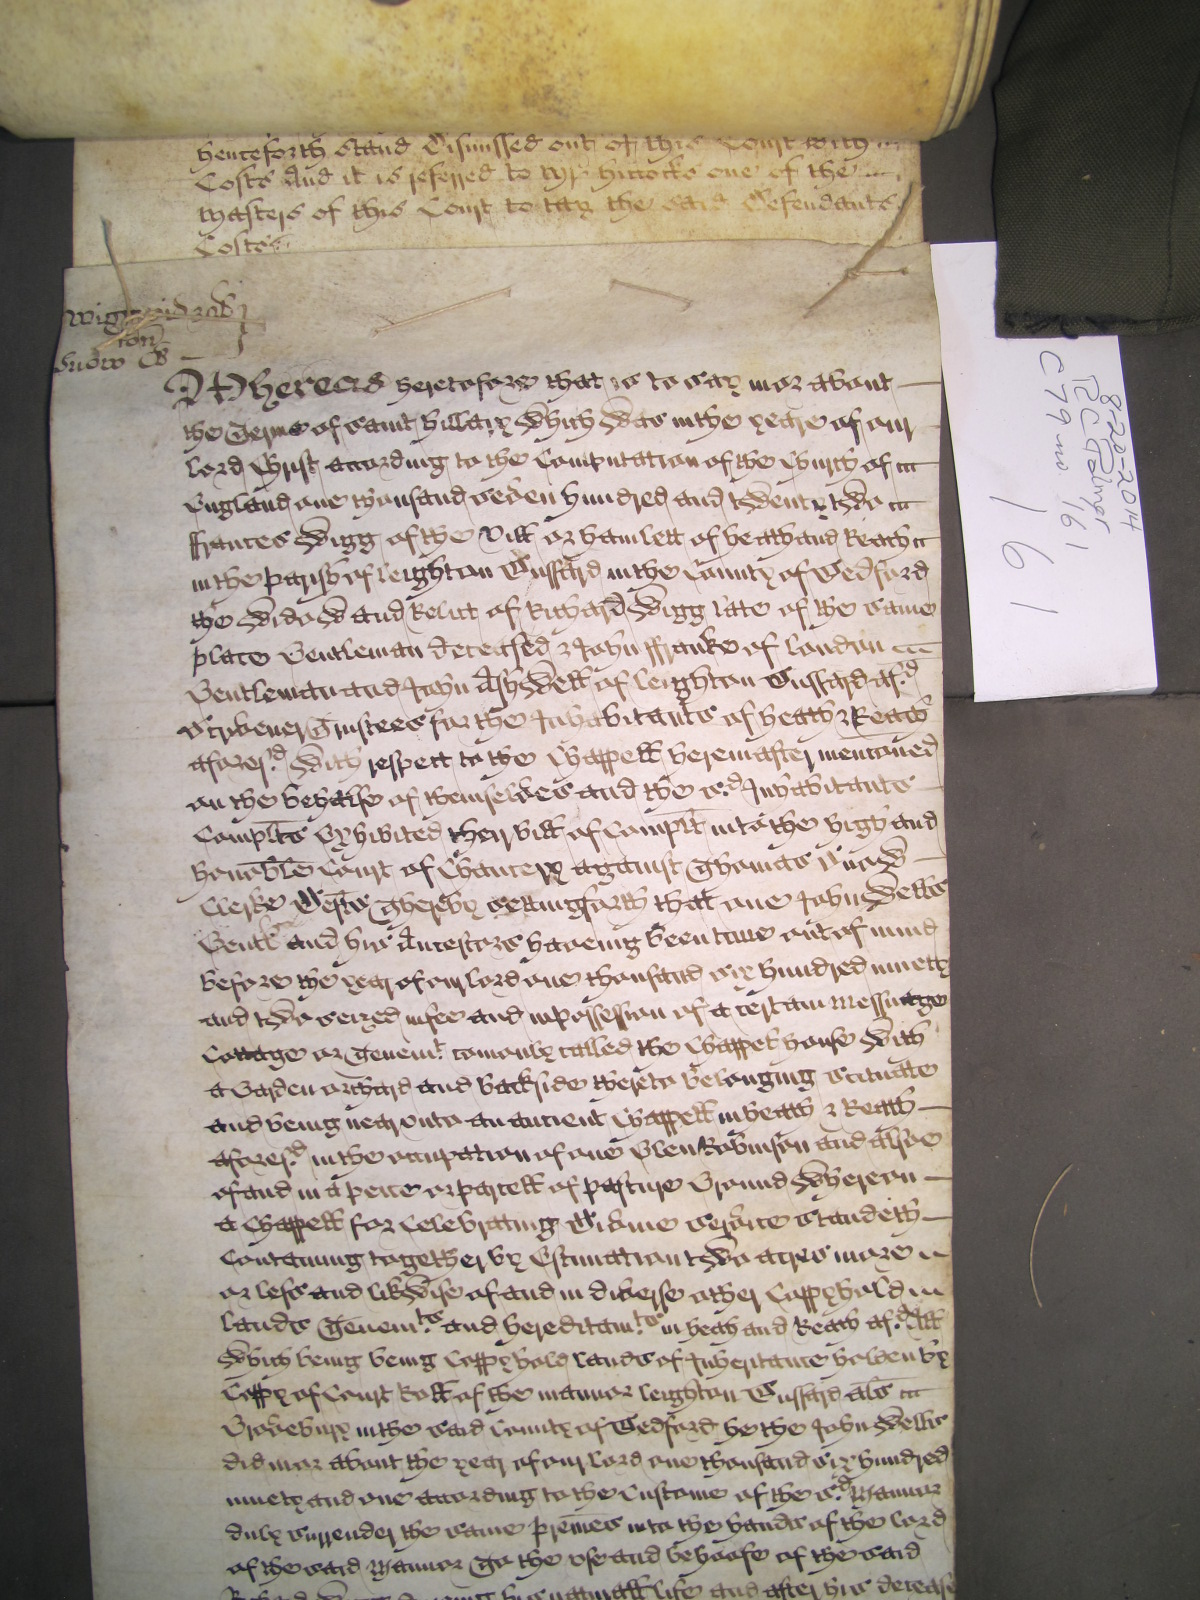 henceforth stand Dismissed out of this Court with
Costs And it is referred to Mr Hiccocks one of the
Masters of this Court to tax the said Defendants
Costs
Wigg vid
con
Snow Cler
Whereas heretofore that is to say in or about
the Terme of Saint Hillary which was in the yeare of our
Lord Christ according to the Computation of the Church of
England one thousand seven hundred and twenty two
Frances Wigg of the Vill or Hamlett of Heath and Reach
in the parish of Leighton Bussard in the County of Bedford
the Widow and Relict of Richard Wigg late of the same
place Gentleman deceased & John Franke of London
Gentleman and John Ashwell of Leighton Bussard afd
Scrivener Trustees for the Inhabitants of Heath & Reach
aforesd with respect to the Chappell hereinafter menconed
on the behalfe of themselves and the sd Inhabitants
Complts Exhibited their bill of Complt into the high and
honoble Court of Chancery against Thomas Snow
Clerke Defts Thereby setting forth that one John Wells
Gentl and his Ancestors haveing been time out of mind
before the year of our Lord one thousand six hundred ninety
and two seized in fee and in possession of a certain Messuage
Cottage or Tenemt comonly called the Chappel house with
a Garden orchard and backside thereto belonging scituate
and being near unto an antient Chappell in Heath & Reach
aforesd in the occupation of one Glen Robinson and alsoe
of and in a peice or parcell of pasture Ground whereon
a Chappell for Celebrating Divine Service standeth
Containing together by Estimation two acres more
or less and likewise of and in diverse other Coppyhold
lands Tenemts and hereditamts in Heath and Reach afd All
which being being Coppyhold lands of Inheritance holden by
Coppy of Court Roll of the mannor Leighton Bussard als
Grovebury in the said County of Bedford he the John Wells
did in or about the year of our Lord one thousand six hundred
ninety and one according to the Custome of the sd Mannor
duly surrender the same premes into the hands of the Lord
of the said Mannor To the use and behoofe of the said
Richard Wigg dureing his naturall life and after his decease
8-20-2014
R C Palmer
C 79 no. 161
161